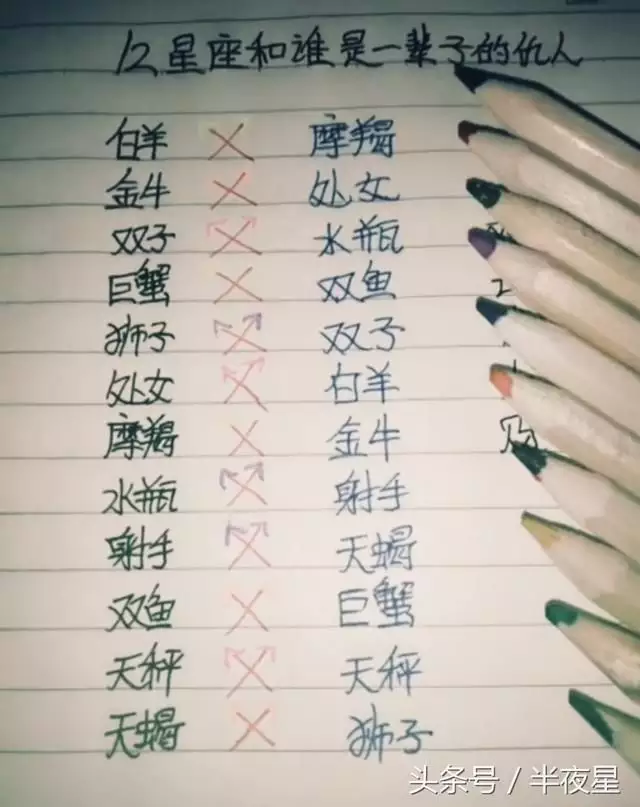 12星座和谁是一辈子的仇人
白羊 × 摩羯
金牛 × 处女
双子 × 水瓶
巨蟹 × 双鱼
狮子 × 双子
处女 × 白羊
摩羯 × 金牛
水瓶 × 射手
射手 × 天蝎
双鱼 × 巨蟹
天秤 × 天秤
天蝎 × 狮子
头条号 / 半夜星